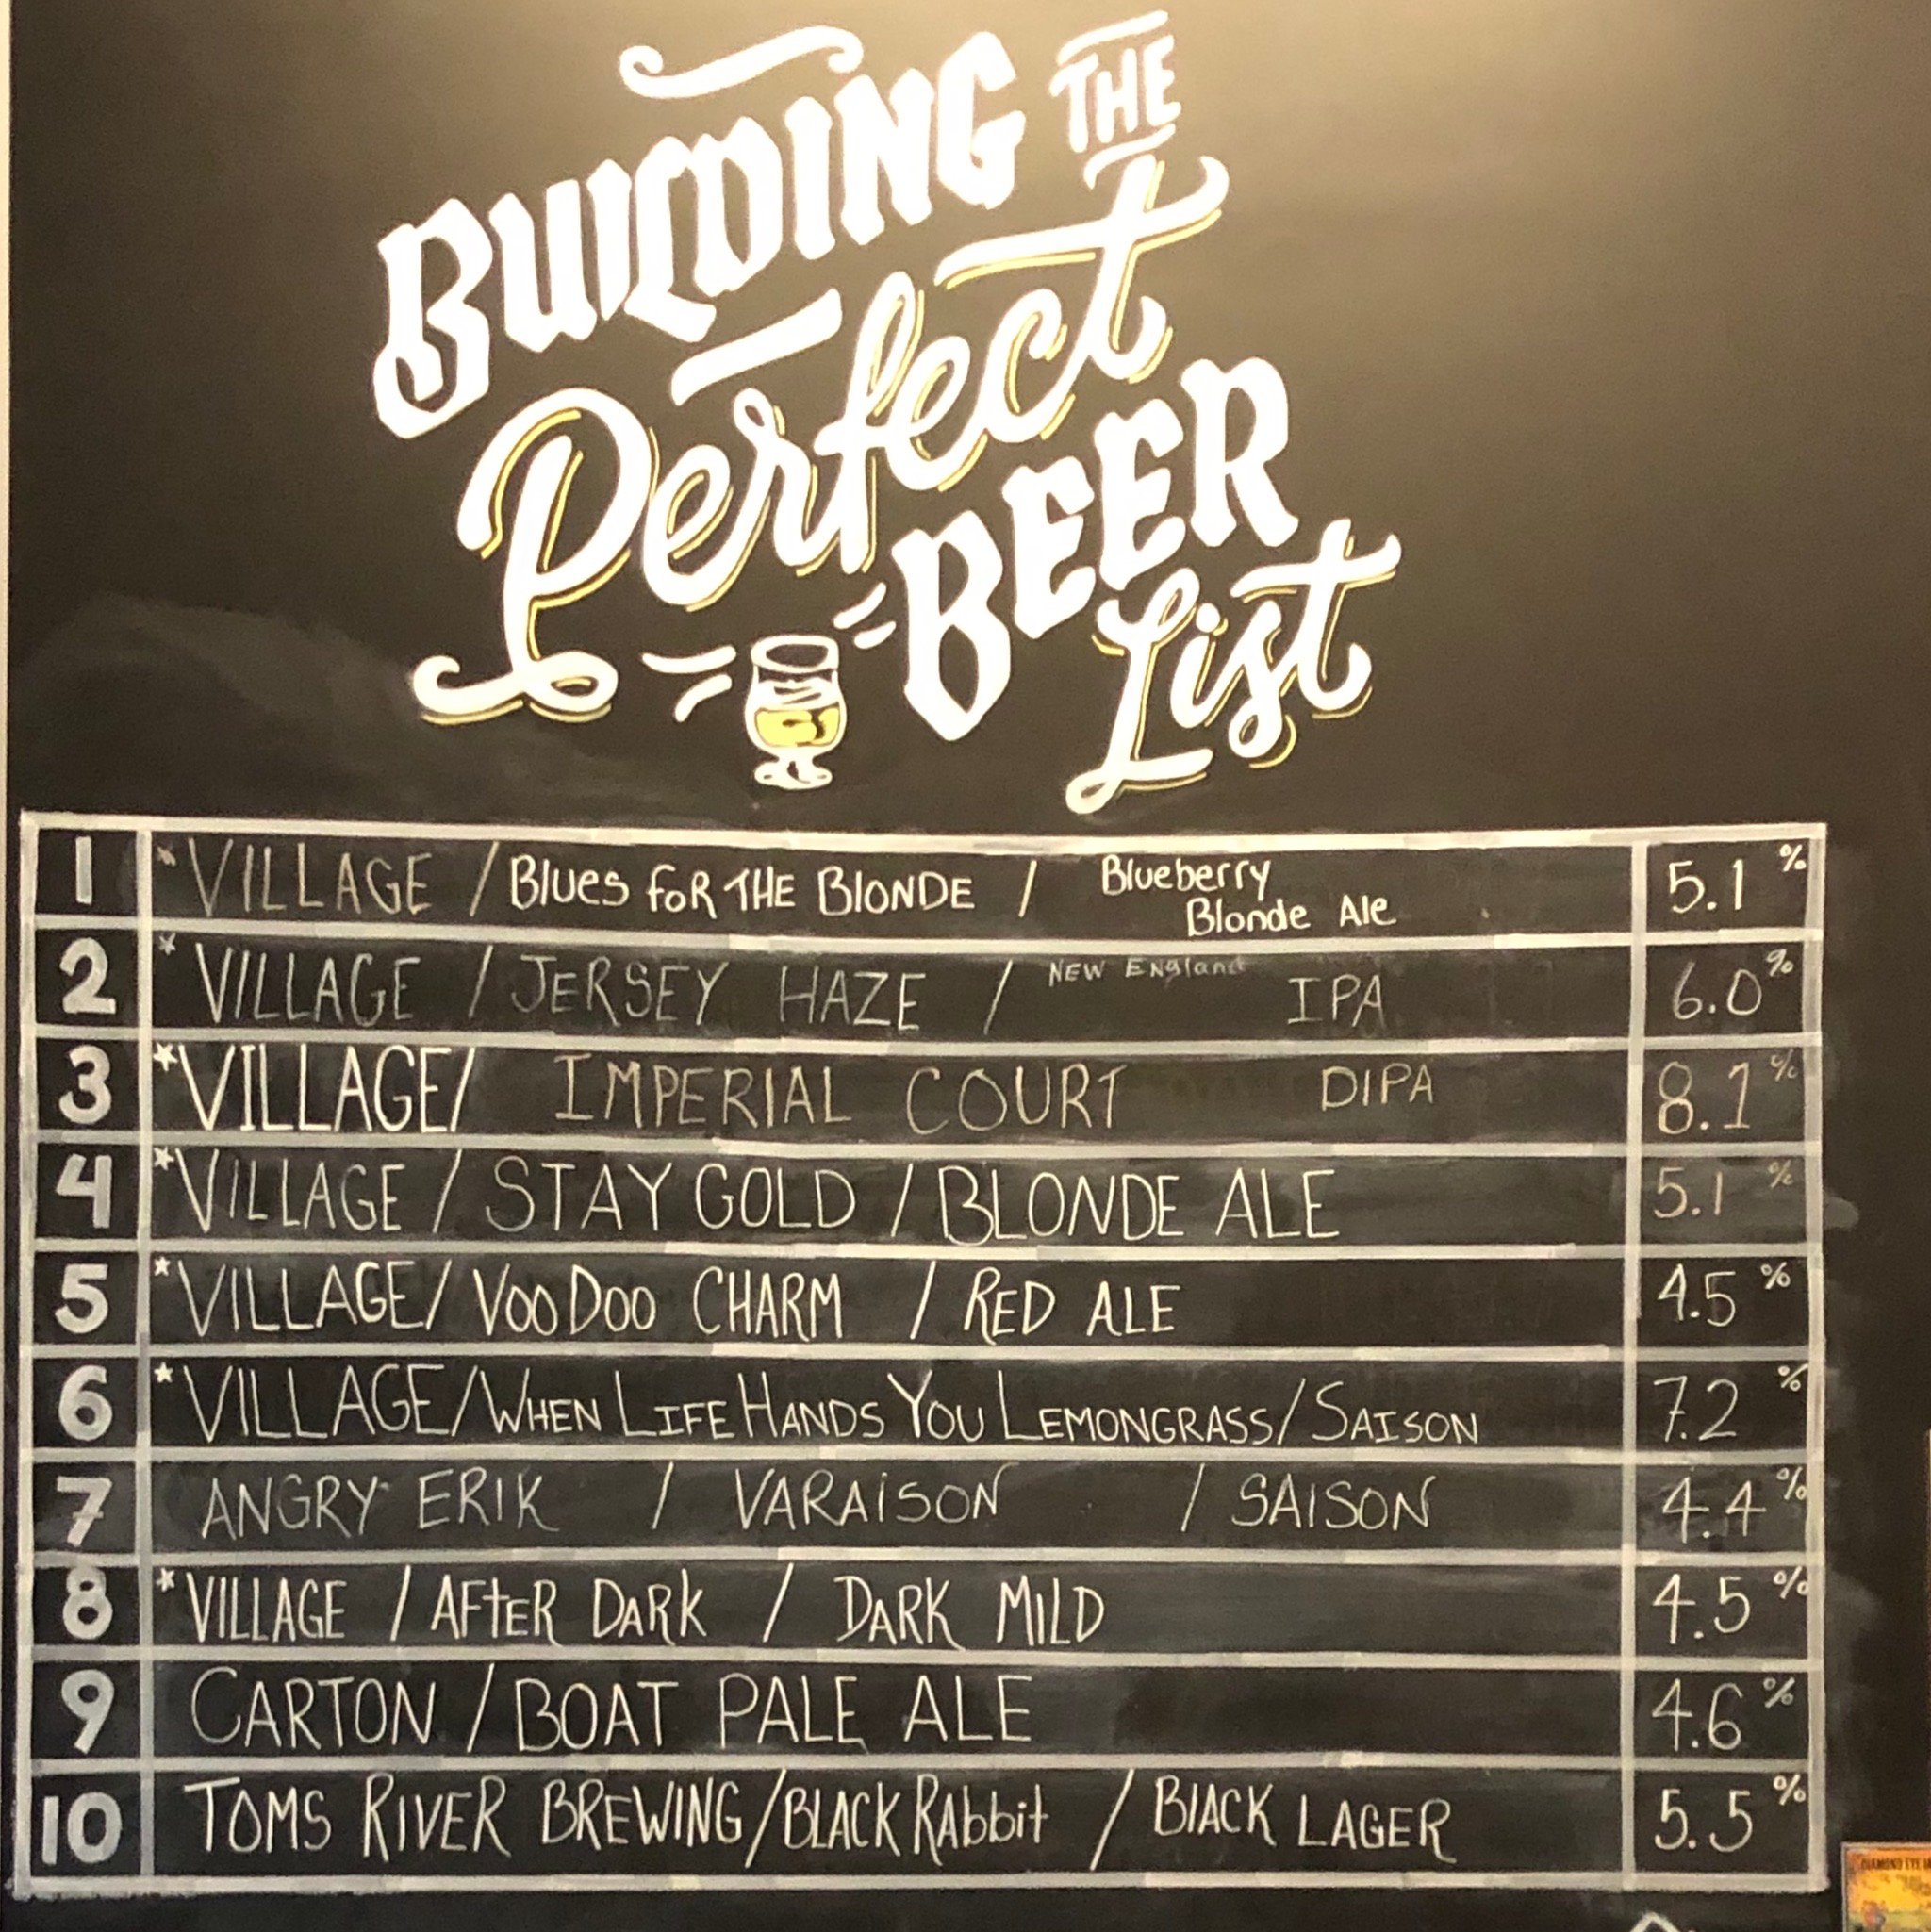 BUILDING THE
Perfect
BEER
List
1 *VILLAGE / Blues FOR THE BLONDE / Blueberry Blonde Ale 5.1 %
2 *VILLAGE / JERSEY HAZE / NEW ENGland IPA 6.0 %
3 *VILLAGE/ IMPERIAL COURT DIPA 8.1 %
4 *VILLAGE / STAY GOLD / BLONDE ALE 5.1 %
5 *VILLAGE/ VOODOO CHARM / RED ALE 4.5 %
6 *VILLAGE/WHEN LIFE HANDS YOU LEMONGRASS/ SAISON 7.2 %
7 ANGRY ERIK / VARAiSON / SAISON 4.4 %
8 *VILLAGE / AFtER DARK / DARK MILD 4.5 %
9 CARTON / BOAT PALE ALE 4.6 %
10 TOMS RIVER BREWING/BLACK RAbbit / BlACK LAGER 5.5 %
DIAMOND EYE